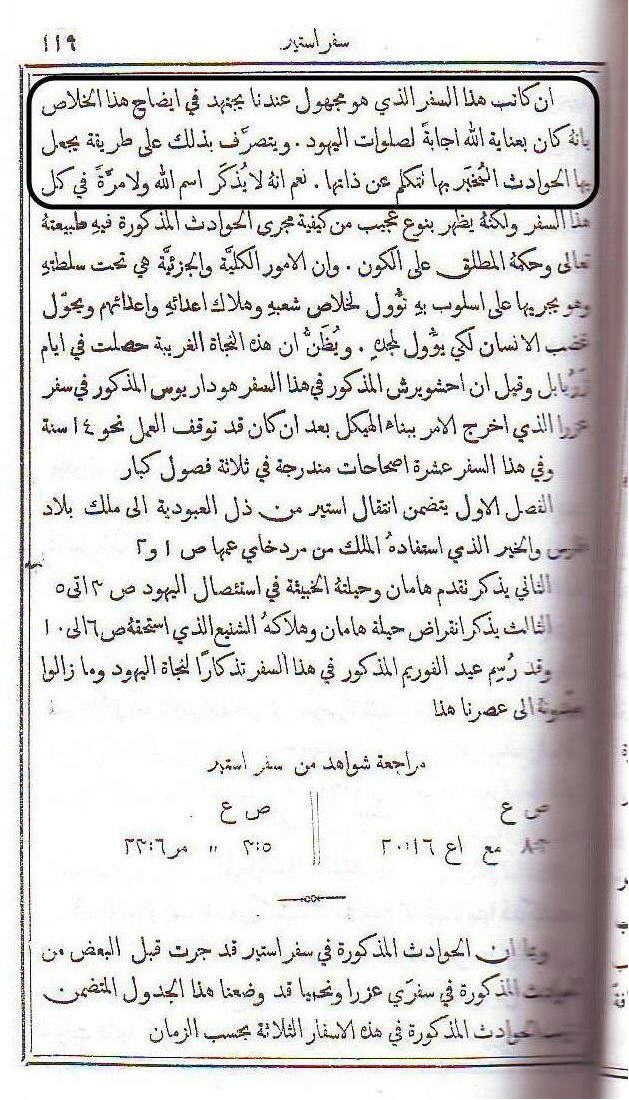 سفر استير ١١٩
ان كاتب هذا السفر الذي هو مجهول عندنا يجتهد في ايضاح هذا الخلاص
بانهُ كان بعناية الله اجابةً لصلوات اليهود . ويتصرَّف بذلك على طريقة يجعل
بها الحوادث المُخبَر بها تتكلم عن ذاتها . نعم انهُ لا يُذكَر اسم الله ولا مرَّةً في كل
هذا السفر ولكنهُ يظهر بنوع عجيب من كيفية مجرى الحوادث المذكورة فيهِ طبيعتهُ
تعالى وحكمهُ المطلق على الكون . وان الامور الكليَّة والجزئيَّة هي تحت سلطتهِ
وهو يجريها على اسلوب بهِ تؤُول لخلاص شعبهِ وهلاك اعدائهِ واعدائهم ويحوّل
غضب الانسان لكي يؤُول لمجدهِ . ويُظَنُّ ان هذه النجاة الغريبة حصلت في ايام
زرُبابل وقيل ان احشويرش المذكور في هذا السفر هو داريوس المذكور في سفر
عزرا الذي اخرج الامر ببناء الهيكل بعد ان كان قد توقف العمل نحو ١٤ سنة
وفي هذا السفر عشرة اصحاحات مندرجة في ثلاثة فصول كبار
الفصل الاول يتضمن انتقال استير من ذل العبودية الى ملك بلاد
فارس والخير الذي استفادهُ الملك من مردخاي عمها ص ١ و٢
الثاني يذكر تقدم هامان وحيلتهُ الخبيثة في استئصال اليهود ص ٣ الى ٥
الثالث يذكر انقراض حيلة هامان وهلاكهُ الشنيع الذي استحقهُ ص ٦ الى ١٠
وقد رُسِم عيد الفوريم المذكور في هذا السفر تذكارًا لنجاة اليهود وما زالوا
الى عصرنا هذا
مراجعة شواهد من سفر استير
ص ع ص ع
مع اع ١٦:٢٠ ٥:٣ " مر ٦:٢٣
وبما ان الحوادث المذكورة في سفر استير قد جرت قبل البعض من
الحوادث المذكورة في سفرَي عزرا ونحميا قد وضعنا هذا الجدول المتضمن
الحوادث المذكورة في هذه الاسفار الثلاثة بحسب الزمان